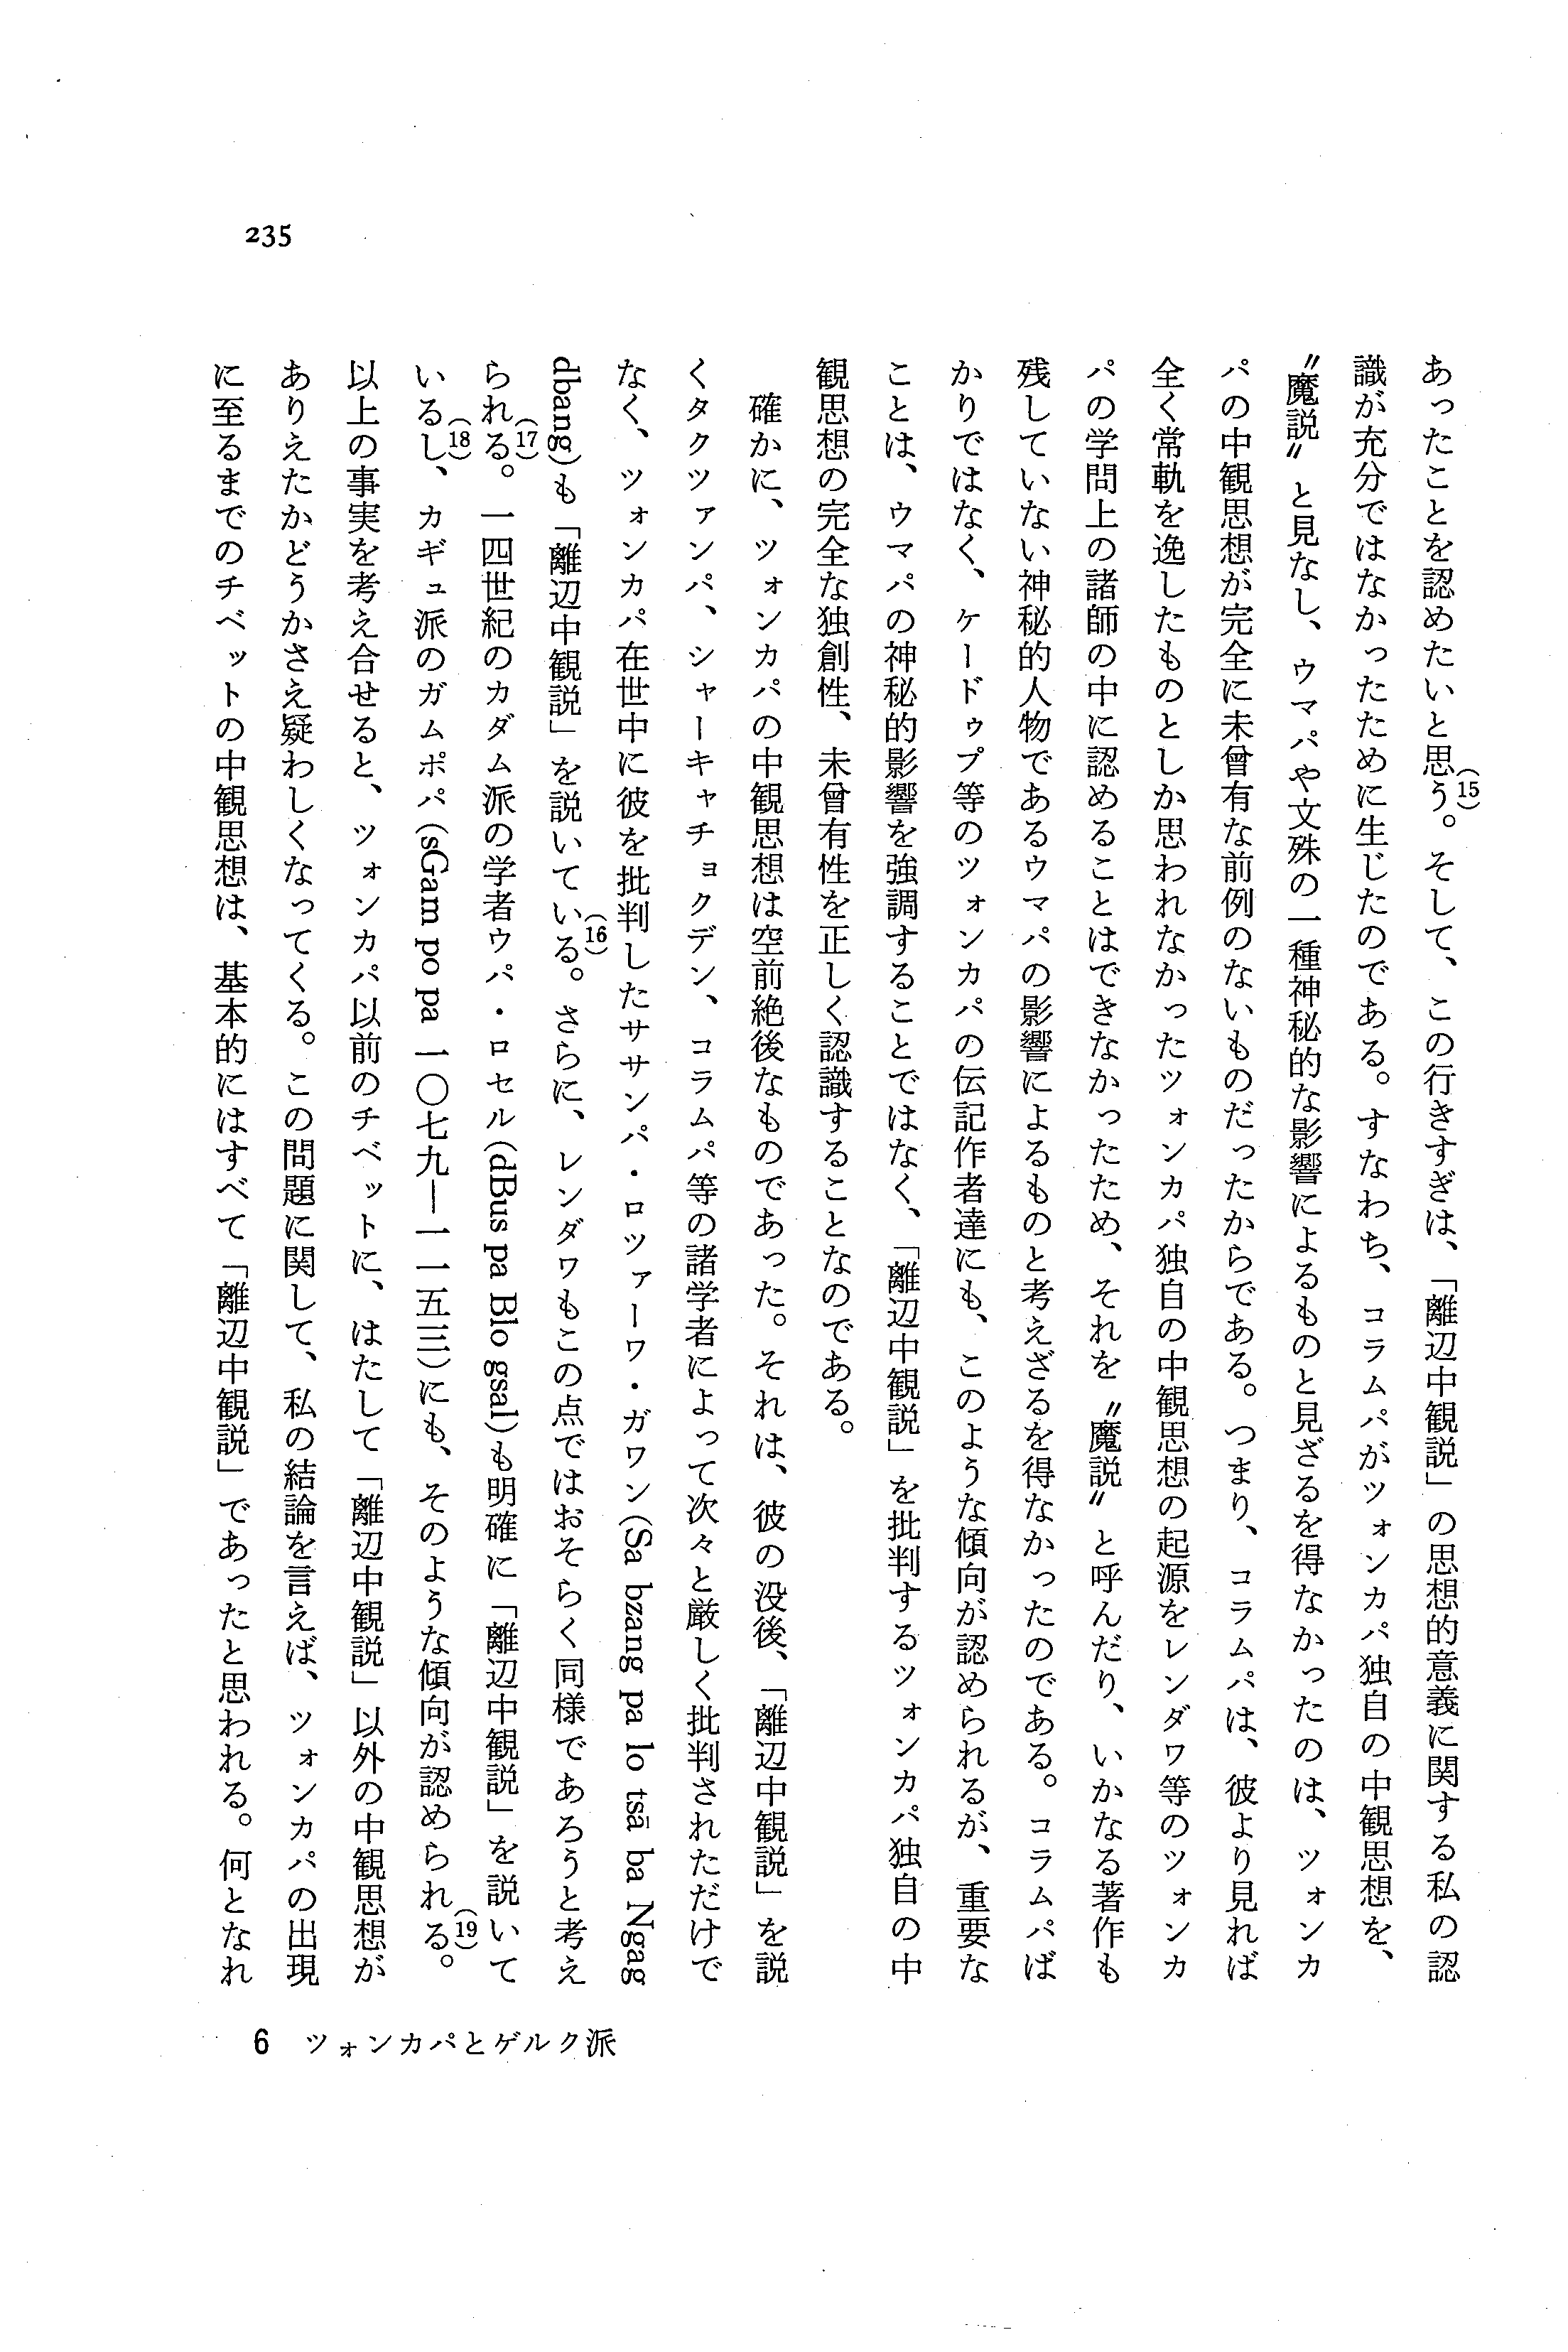 あったことを認めたいと思う。(15)そして、この行きすぎは、「離辺中観説」の思想的意義に関する私の認
識が充分ではなかったために生じたのである。すなわち、コラムパがツォンカパ独自の中観思想を、
〝魔説〟と見なし、ウマパや文殊の一種神秘的な影響によるものと見ざるを得なかったのは、ツォンカ
パの中観思想が完全に未曾有な前例のないものだったからである。つまり、コラムパは、彼より見れば
全く常軌を逸したものとしか思われなかったツォンカパ独自の中観思想の起源をレンダワ等のツォンカ
パの学問上の諸師の中に認めることはできなかったため、それを〝魔説〟と呼んだり、いかなる著作も
残していない神秘的人物であるウマパの影響によるものと考えざるを得なかったのである。コラムパば
かりではなく、ケードゥプ等のツォンカパの伝記作者達にも、このような傾向が認められるが、重要な
ことは、ウマパの神秘的影響を強調することではなく、「離辺中観説」を批判するツォンカパ独自の中
観思想の完全な独創性、未曾有性を正しく認識することなのである。
確かに、ツォンカパの中観思想は空前絶後なものであった。それは、彼の没後、「離辺中観説」を説
くタクツァンパ、シャーキャチョクデン、コラムパ等の諸学者によって次々と厳しく批判されただけで
なく、ツォンカパ在世中に彼を批判したササンパ・ロツァーワ・ガワン(Sa bzang pa lo tsā ba Ngag
dbang)も「離辺中観説」を説いている。(16)さらに、レンダワもこの点ではおそらく同様であろうと考え
られる。(17)一四世紀のカダム派の学者ウパ・ロセル(dBus pa Blo gsal)も明確に「離辺中観説」を説いて
いるし、(18)カギュ派のガムポパ(sGam po pa 一〇七九―一一五三)にも、そのような傾向が認められる。(19)
以上の事実を考え合せると、ツォンカパ以前のチベットに、はたして「離辺中観説」以外の中観思想が
ありえたかどうかさえ疑わしくなってくる。この問題に関して、私の結論を言えば、ツォンカパの出現
に至るまでのチベットの中観思想は、基本的にはすべて「離辺中観説」であったと思われる。何となれ
6 ツォンカパとゲルク派
235